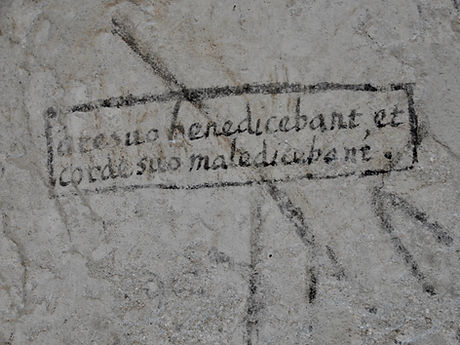 suo benedicebant, et
corde suo maledicebant